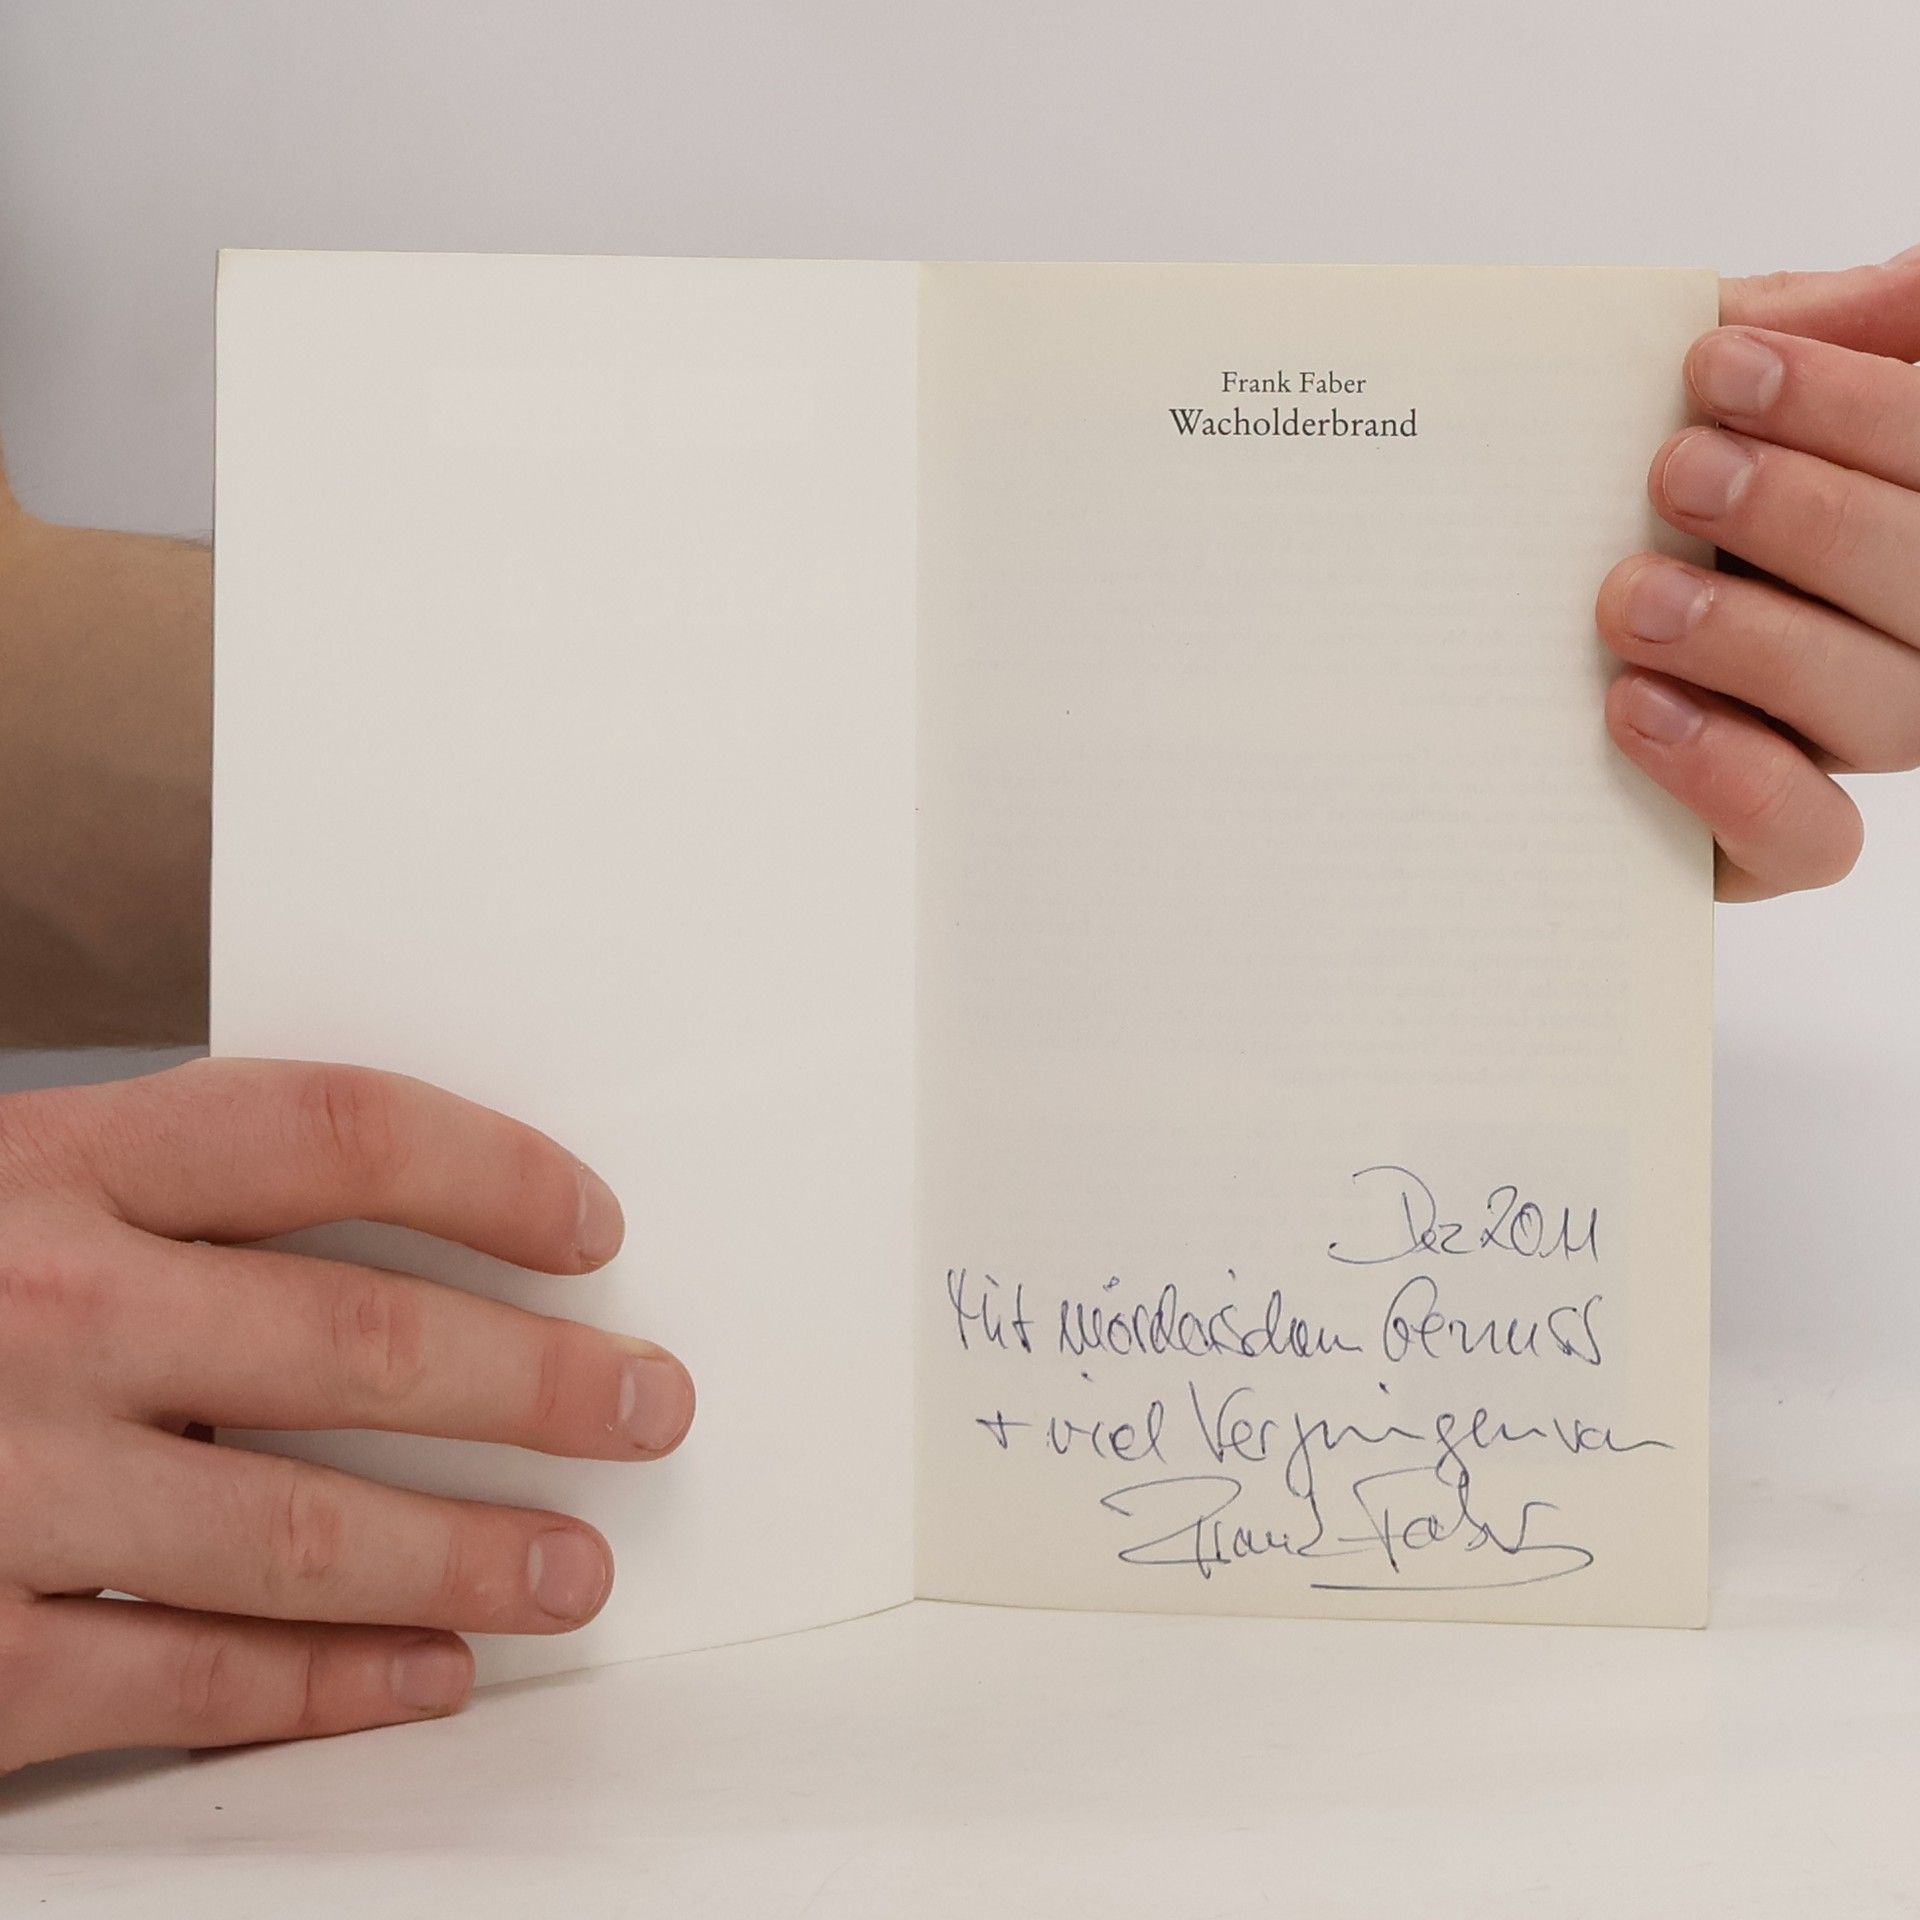 Frank Faber
Wacholderbrand
Dez 2011
Mit mörderischem Genuss
+ viel Vergnügen von
Frank Faber